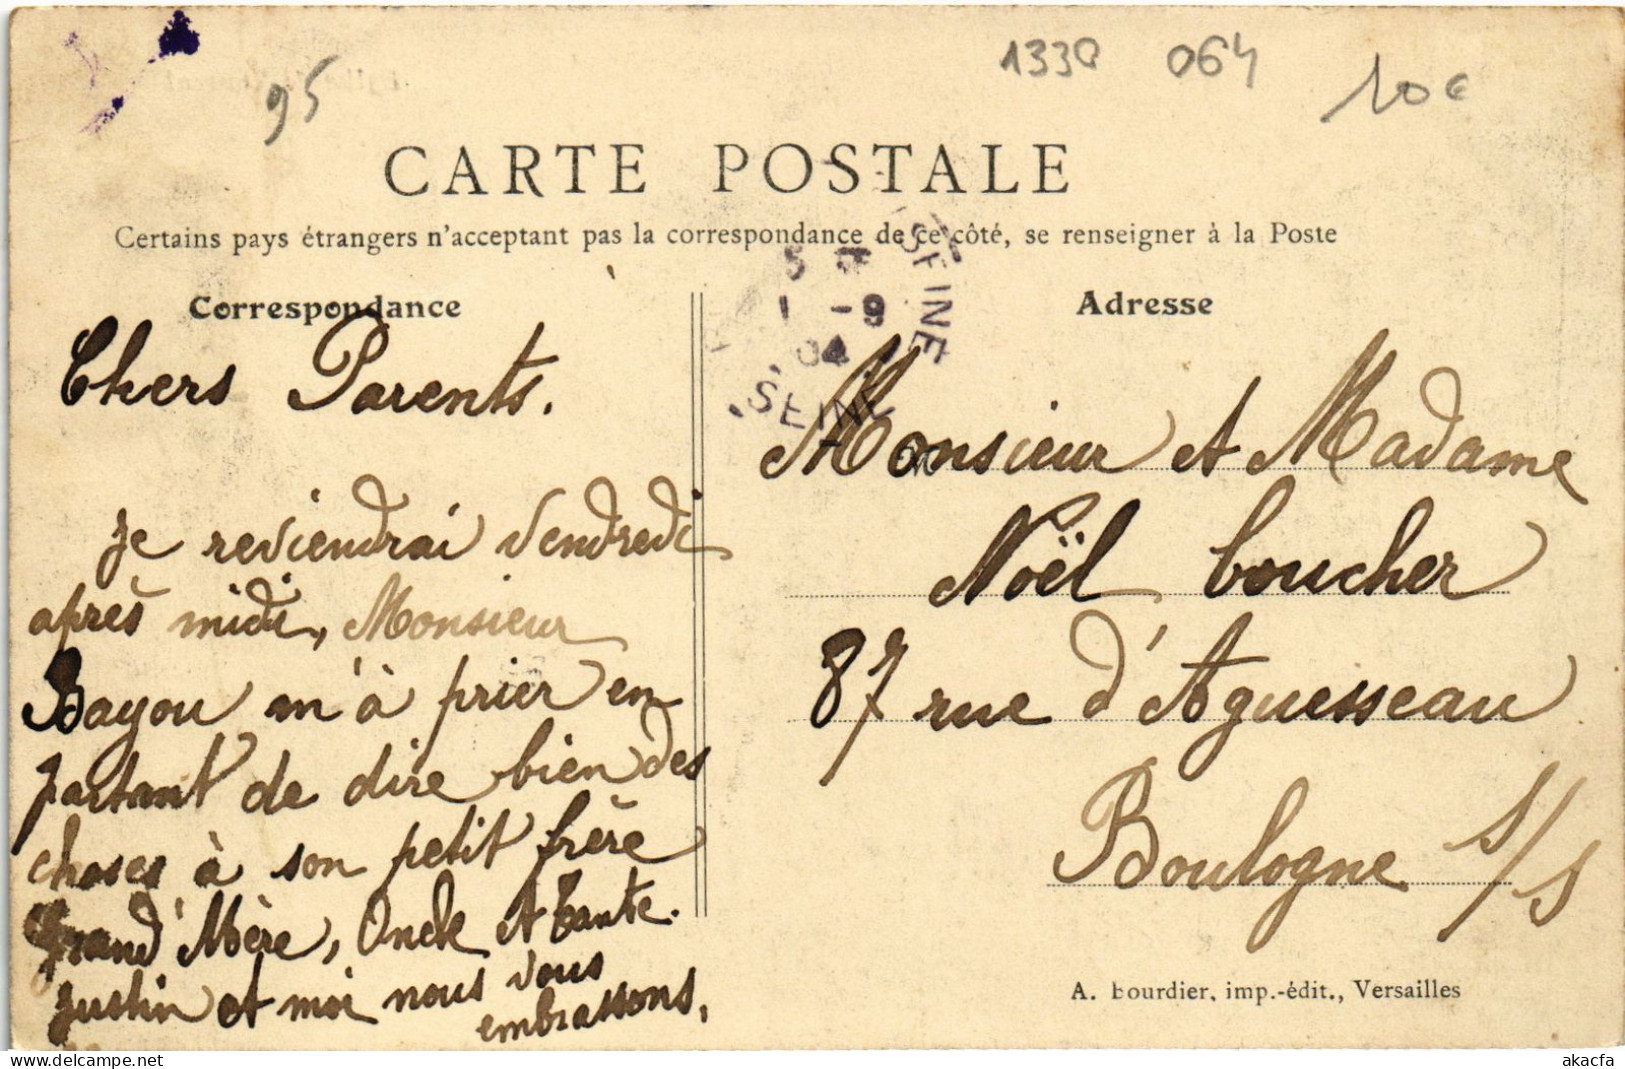 95
1330 064
10€
CARTE POSTALE
Certains pays étrangers n'acceptant pas la correspondance de ce côté, se renseigner à la Poste
Correspondance
Chers Parents.
Je reviendrai Vendredi
après midi, Monsieur
Bayou m'à prier en
partant de dire bien des
choses à son petit frère
Grand' Mère, Oncle et tante.
Justin et moi nous vous
embrassons.
1 -9
04
SEINE
SEINE
Adresse
Monsieur et Madame
Noël boucher
87 rue d'Aguesseau
Boulogne s/s
A. bourdier, imp.-édit., Versailles
akacfa